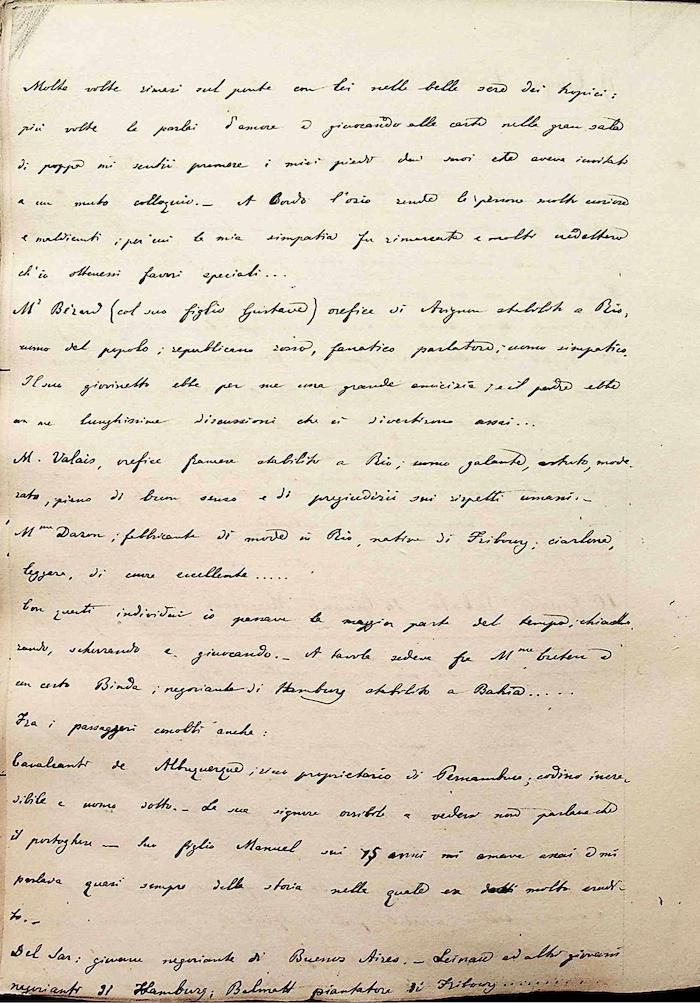 Molte volte rimasi sul ponte con lei nelle belle sere dei tropici:
più volte le parlai d'amore e giuocando alle carte nella gran sala
di poppa mi sentii premere i miei piedi dai suoi che aveva invitato
a un muto colloquio._ A Bordo l'ozio rende le persone molto curiose
e maldicenti; per cui la mia simpatia fu rimarcata e molti credettero
ch'io ottenessi favori speciali...
Mr Bérard (col suo figlio Gustave) orefice di Avignon stabilito a Rio,
uomo del popolo; repubblicano rosso, fanatico parlatore; uomo simpatico.
Il suo giovinetto ebbe per me una grande amicizia; e il padre ebbe
con me lunghissime discussioni che ci divertirono assai...
M. Valais, orefice francese stabilito a Rio; uomo galante, astuto, mode-
rato, pieno di buon senso e di pregiudizii sui rispetti umani._
Mme Daron; fabbricante di mode in Rio, nativa di Fribourg; ciarlona,
leggera, di cuore eccellente.....
Con questi individui io passava la maggior parte del tempo, chiacche-
rando, scherzando e giuocando._ A tavola sedeva fra Mme Breton e
un certo Binda; negoziante di Hamburg stabilito a Bahia.....
Fra i passaggeri conobbi anche:
Cavalcanti de Albuquerque; ricco proprietario di Pernambuco; codino incre-
dibile e uomo dotto._ La sua signora orribile a vedersi non parlava che
il portoghese _ Suo figlio Manuel sui 15 anni mi amava assai e mi
parlava quasi sempre della storia nella quale era molto erudi-
to._
Del Sar: giovane negoziante di Buenos Aires._ ed altri giovani
negozianti di Hamburg; piantatore di Fribourg..........